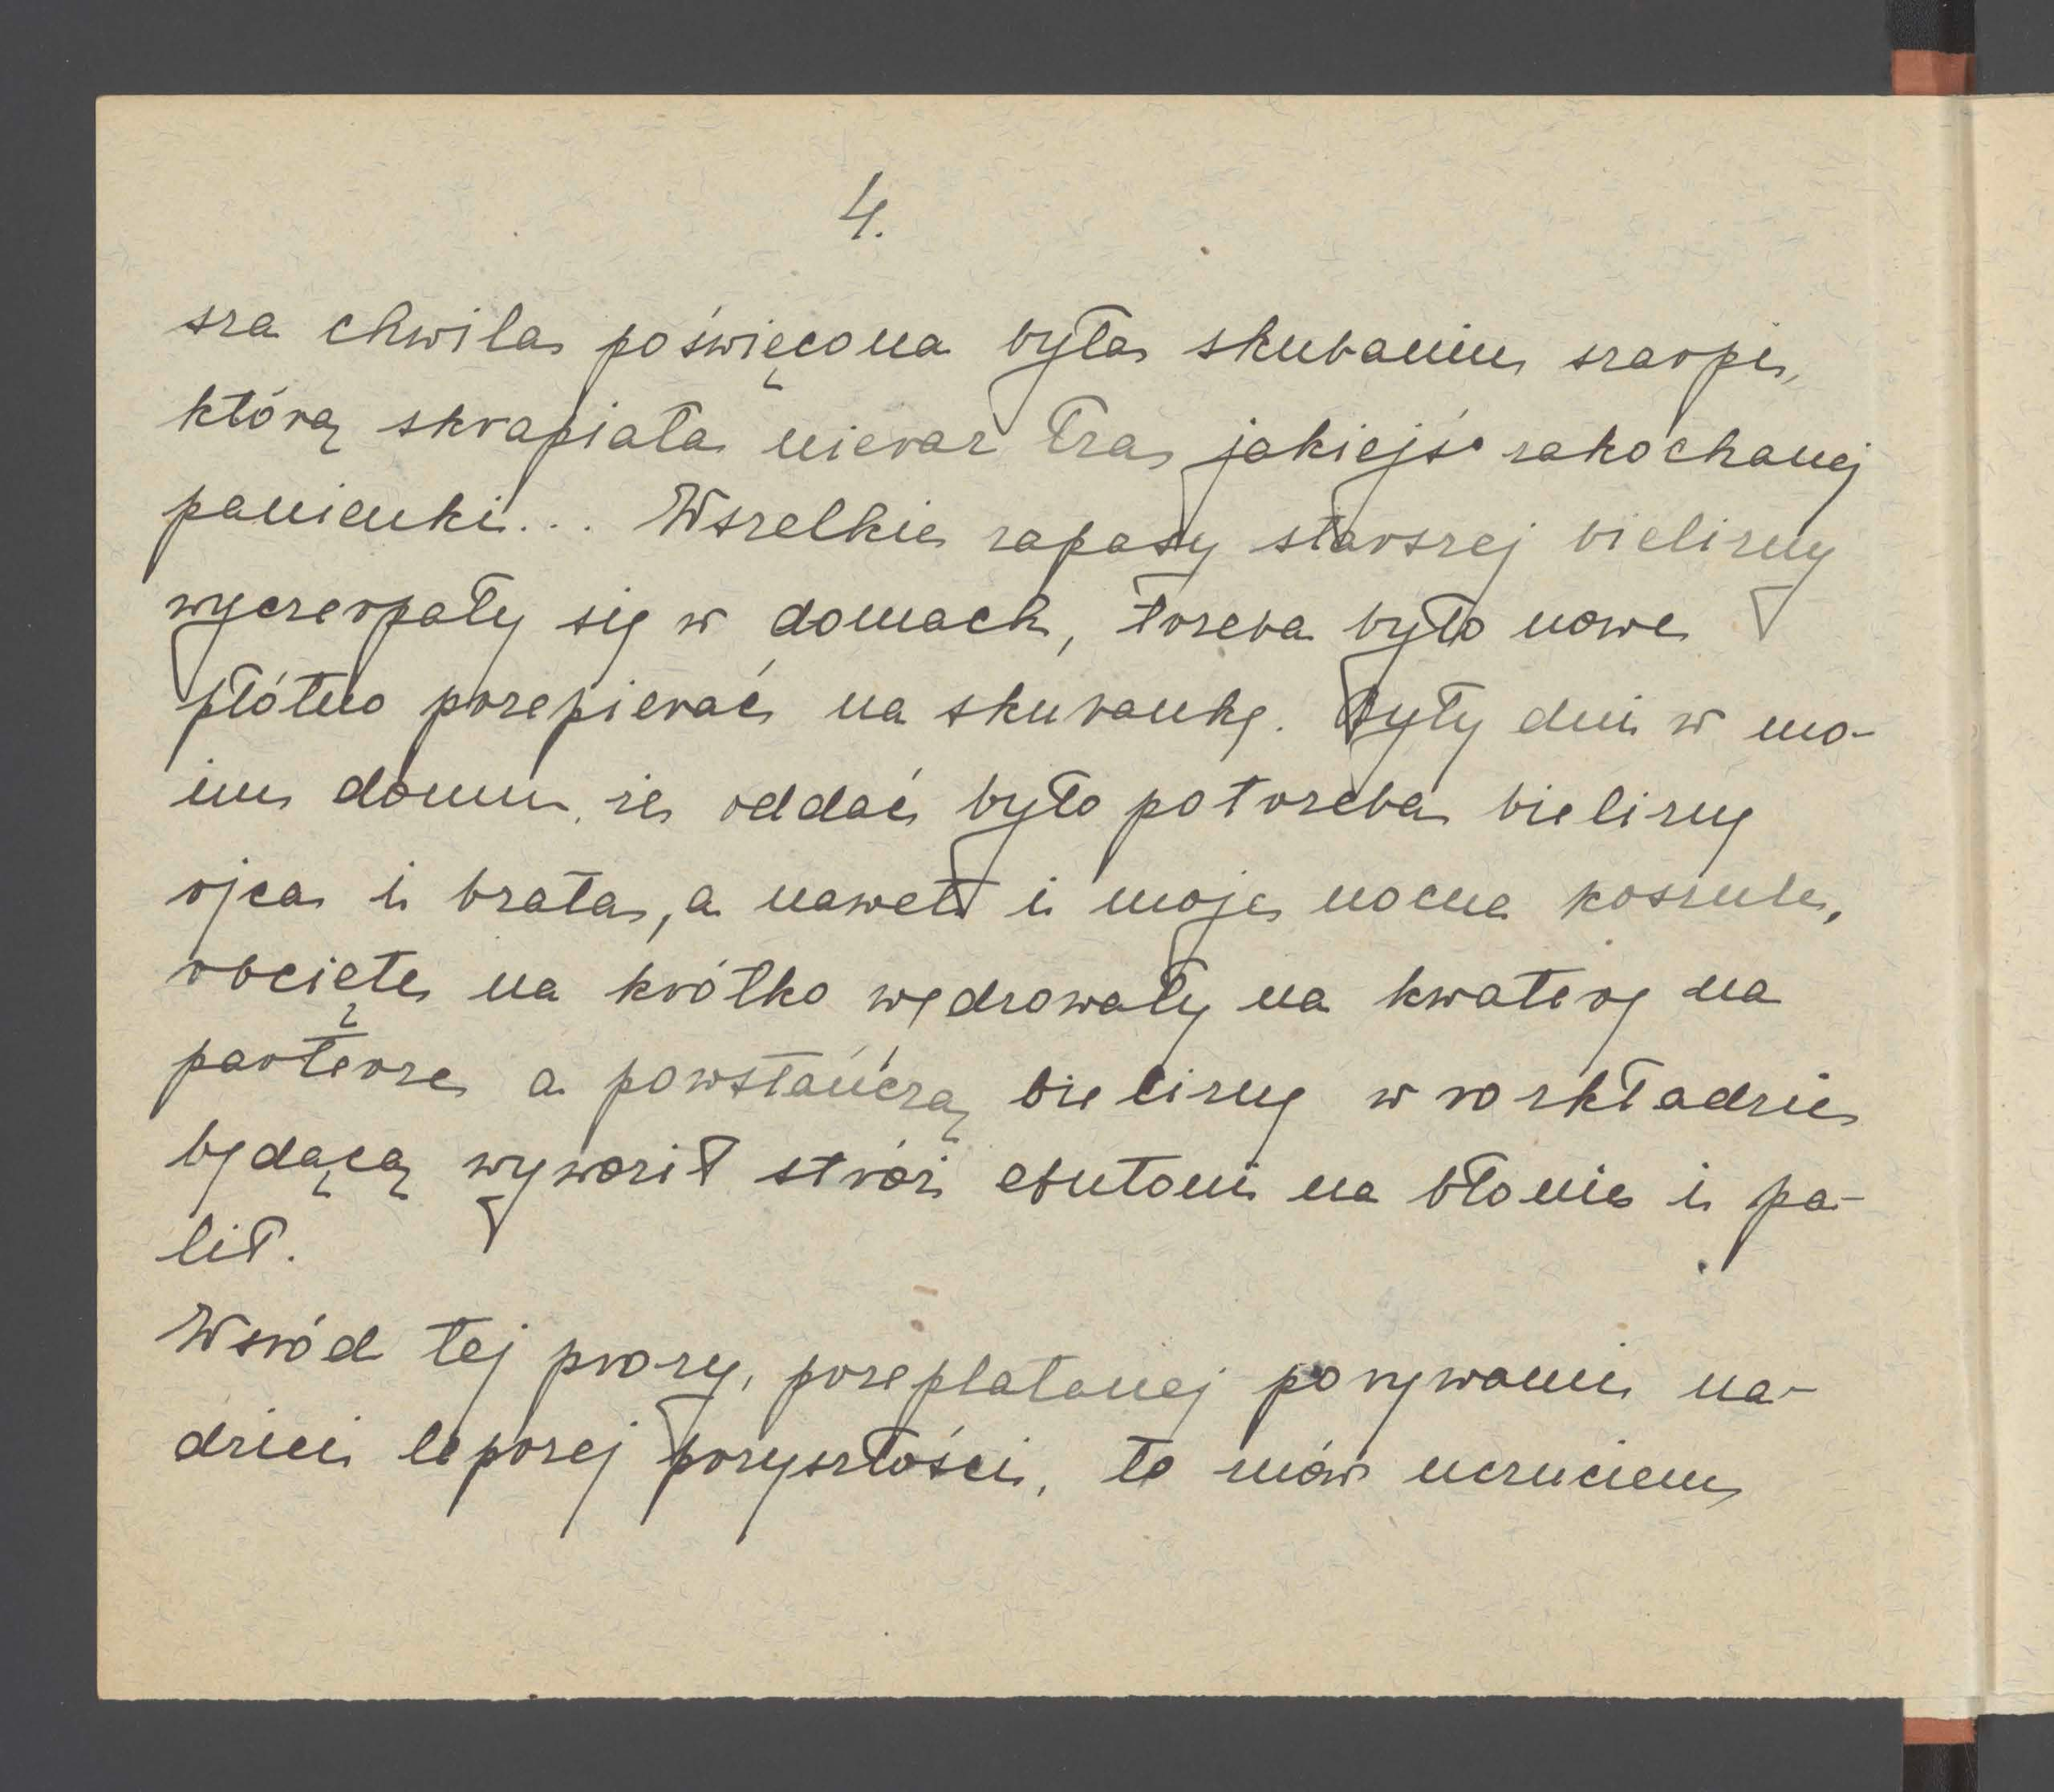 4.
sza chwila poświęcona była skubaniu szarpi,
którą skrapiała nieraz łza jakiejś zakochanej
panienki... Wszelkie zapasy starszej bielizny
wyczerpały się w domach, trzeba było nowe
płótno przepierać na skubankę. Były dni w mo-
im domu, że oddać było potrzeba bieliznę
ojca i brata, a nawet i moje nocne koszule,
obcięte na krótko wędrowały na kwaterę na
parterze a powstańczą bieliznę w rozkładzie
będącą wywoził stróż na błonie i pa-
lił.
Wsród tej prozy, przeplatanej porywami na-
dziei lepszej przyszłości, to znów uczuciem